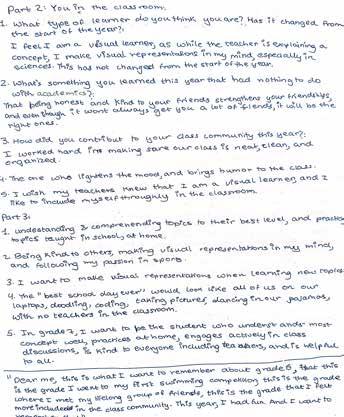 Part 2: You in the classroom.
1. What type of learner do you think you are? Has it changed from
the start of the year?:
I feel I am a visual learner, as while the teacher is explaining a
concept, I make visual representations in my mind, especially in
sciences. This has not changed from the start of the year.
2. What's something you learned this year that had nothing to do
with academics?:
That being honest and kind to your friends strengthens your friendships,
and even though it wont always get you a lot of friends, it will be the
right ones.
3. How did you contribut to your class community this year?:
I worked hard in making sure our class is neat, clean, and
organized.
4. The one who lightens the mood, and brings humor to the class.
5. I wish my teachers knew that I am a visual learner, and I
like to include myself throughly in the classroom.
Part 3:
1. understanding & comprehending topics to their best level, and
topics taught in school, at home.
2. Being kind to others, making visual representations in my mind,
and following my passion in sports.
3. I want to make visual representations when learning new topics.
4. The "best school day ever" would look like all of us on our
laptops, doodling, coding, taking pictures, dancing in our pajamas,
with no teachers in the classroom.
5. In grade 7, I want to be the student who understands most
concept well, practices at home, engages actively in class
discussions, is kind to everyone including teachers, and is helpful
to all.
"Dear me, this is what I want to remember about grade 6, that this
is the grade I went to my first swimming competition, this is the grade
where I met my lifelong group of friends, this is the grade that I felt
more included in the class community. This year, I had fun. And I want to